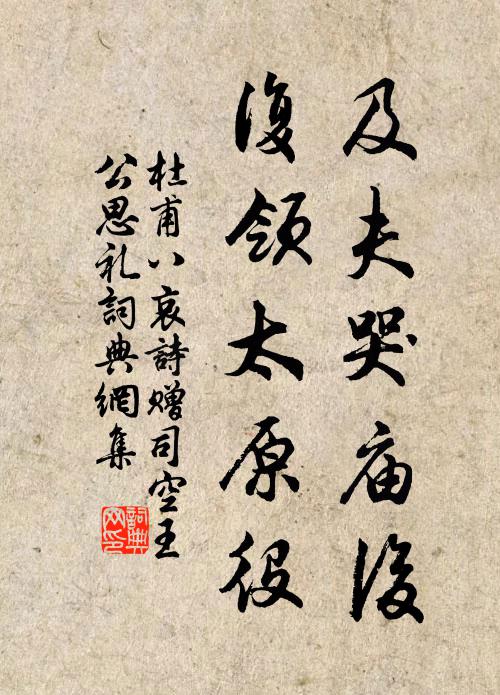 及夫哭庙後
復领太原役
杜甫八哀詩赠司空王
公思礼詞典網集
詞典网印